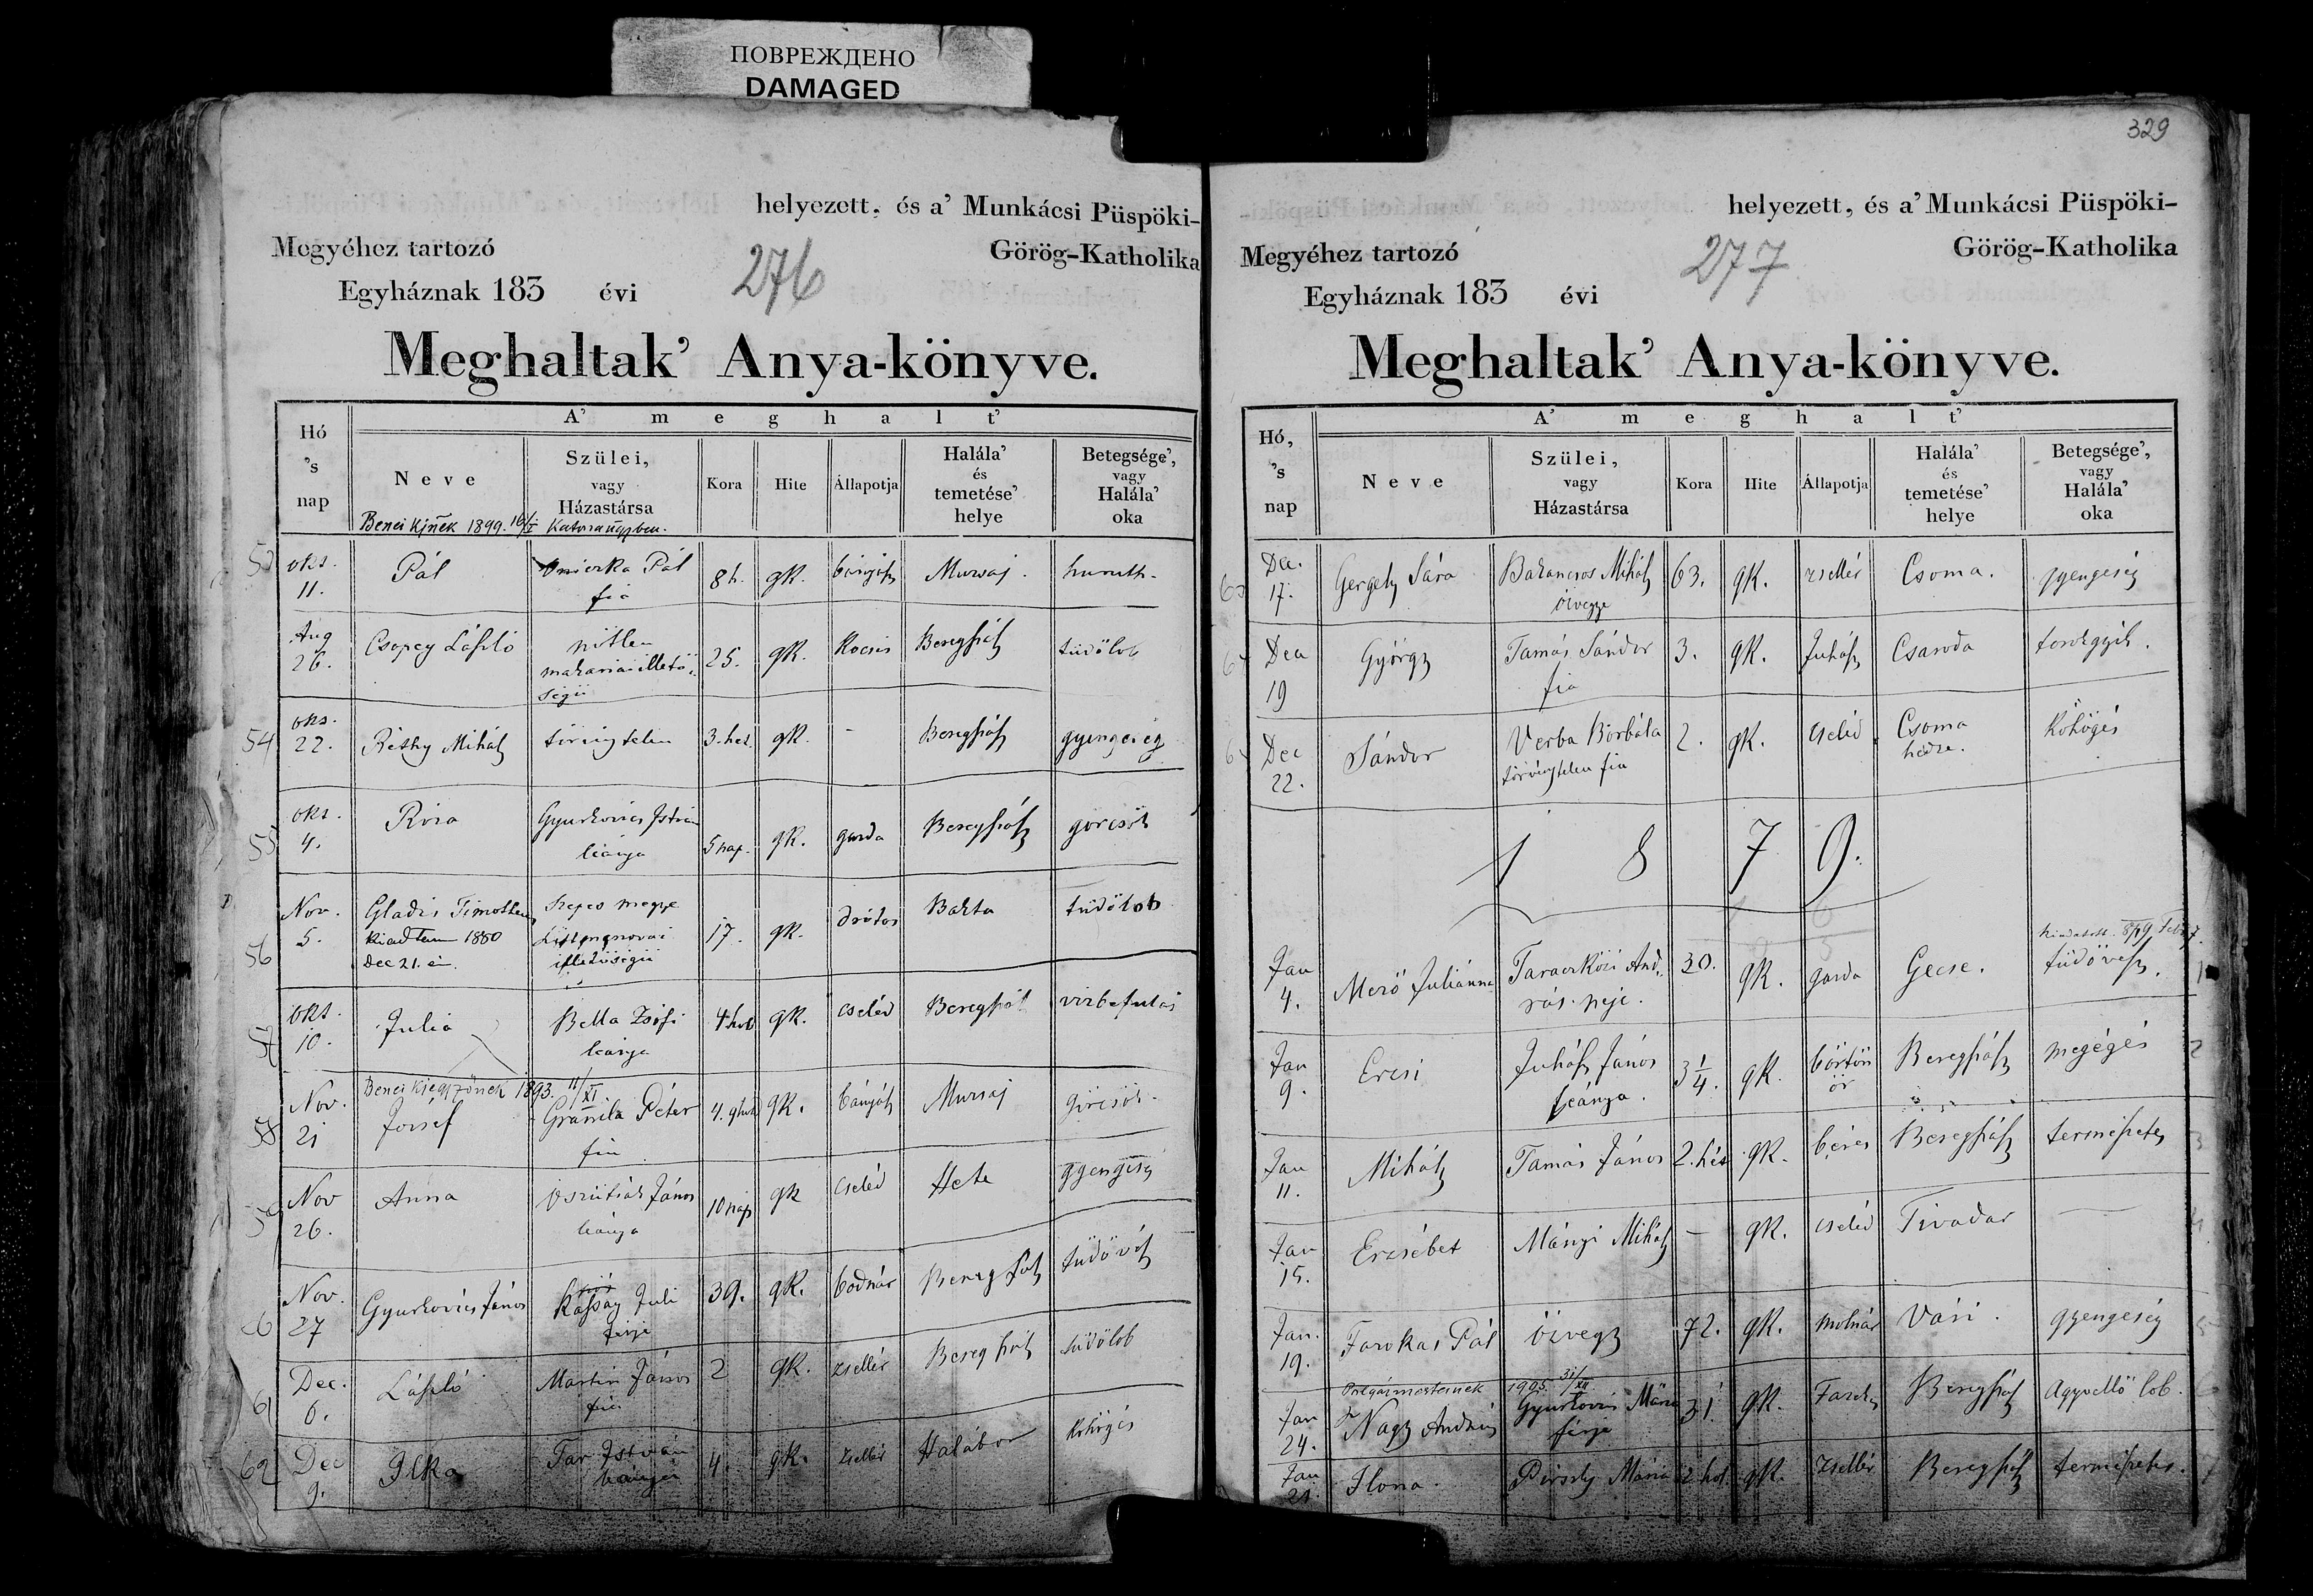 ПОВРЕЖДЕНО
DAMAGED
helyezett, és a' Munkácsi Püspöki-
Megyéhez tartozó Görög-Katholika
276
Egyháznak 183 évi
Meghaltak' Anya-könyve.
Hó 's nap
A' meghalt'
Neve
Szülei, vagy Házastársa
Kora
Hite
Állapotja
Halála' és temetése' helye
Betegsége', vagy Halála' oka
Benei 1899. 16/I
okt. 11. Pál Pál fia 8 h. gk. Muzsaj.
Aug 26. Csopey László nőtlen 25. gk. Kocsis Beregszász tüdőlob
54 okt. 22. Réthy Mihály törvénytelen 3. het. gk. - Beregszász gyengeség
55 okt. 4. Róza Gyurkovics István leánya 5 nap. gk. Beregszász görcsök
56 Nov. 5. Gladis Timotheus Szepes megye illetőségü 17. gk. drótos Bakta tüdőlob
kiadtam 1880
Dec 21. én.
57 okt. 10. Julia Bella Zsófi leánya 4 hó gk. cseléd Beregszász
Benei 1893. 11/XI
58 Nov. 21 József Péter fia 4. gk. Muzsaj görcsök.
Nov 26. Anna János leánya 10 nap gk cseléd Hete gyengeség
Nov. 27 Gyurkovics János Kassay Juli férje 39. gk. bodnár Beregszász tüdővész
61 Dec. 6. László Martin János fia 2 gk. zsellér Beregszász tüdőlob
62 Dec 9. Ilka Tar István leánya 4. gk. zsellér Halábor köhögés
329
helyezett, és a' Munkácsi Püspöki-
Megyéhez tartozó Görög-Katholika
277
Egyháznak 183 évi
Meghaltak' Anya-könyve.
Hó, 's nap
A' meghalt'
Neve
Szülei, vagy Házastársa
Kora
Hite
Állapotja
Halála' és temetése' helye
Betegsége', vagy Halála' oka
Dec. 17. Gergely Sára Bakancsos Mihály özvegye 63. gk. zsellér Csoma. gyengeség
Dec 19 György Tamás Sándor fia 3. gk. Juhász Csaroda torokgyík.
Dec 22. Sándor Verba Borbála törvénytelen fia 2. gk. cseléd Csoma köhögés
1879.
Jan 4. Mező Juliánna neje. 30. gk. Gecse. tüdővész. 1
Jan 9. Erzsi Juhász János leánya. 3 1/4. gk. börtön őr Beregszász megégés 2
Jan 11. Mihály Tamás János 2. hét gk. béres Beregszász természetes 3
Jan 15. Erzsébet Mányi Mihály - gk. cseléd Tivadar -
Jan. 19. Farokas Pál özvegy 72. gk. molnár Vári. gyengeség 5
Polgármesternek 1905. 31/XII
Jan 24. Nagy András Gyurkovics Mária férje 31. gk. Beregszász Agyvelő lob.
Jan 21. Ilona. Mária 2 hó. gk. zsellér Beregszász természetes.